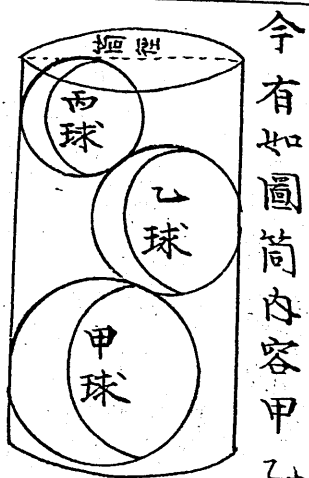 今有如圖筒内容甲乙
丙球
乙球
甲球